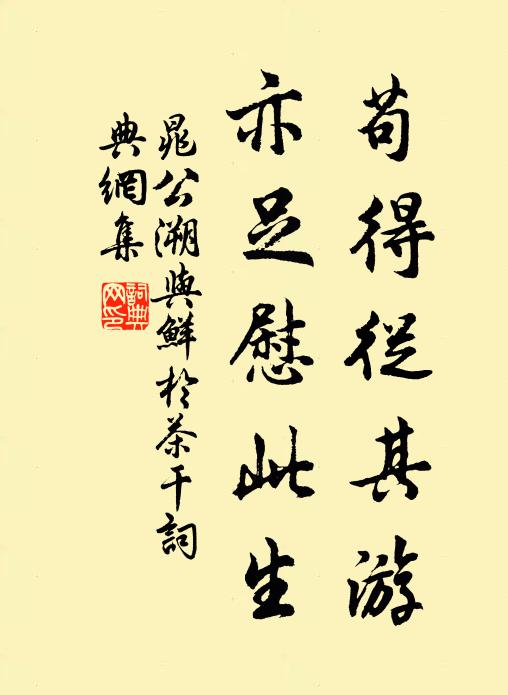 苟得從其游
亦足慰此生
晁公溯與鮮於茶干詞
典網集
詞典網印